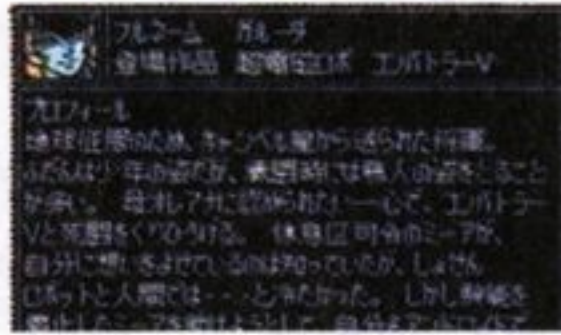 フルネーム ガルーダ
登場作品 超電磁ロボ コンバトラーV
プロフィール
地球征服のため、キャンベル星から送られた将軍。
ふだんは少年の姿だが、戦闘時には鳥人の姿をとること
が多い。 母オレアナに認められたい一心で、コンバトラー
Vと死闘をくりひろげる。 のミーアが、
自分に想いをよせているのは知っていたが、しょせん
ロボットと人間では・・・と冷たかった。 しかし機能を
停止したミーアを助けようとして、自分もアンドロイドで